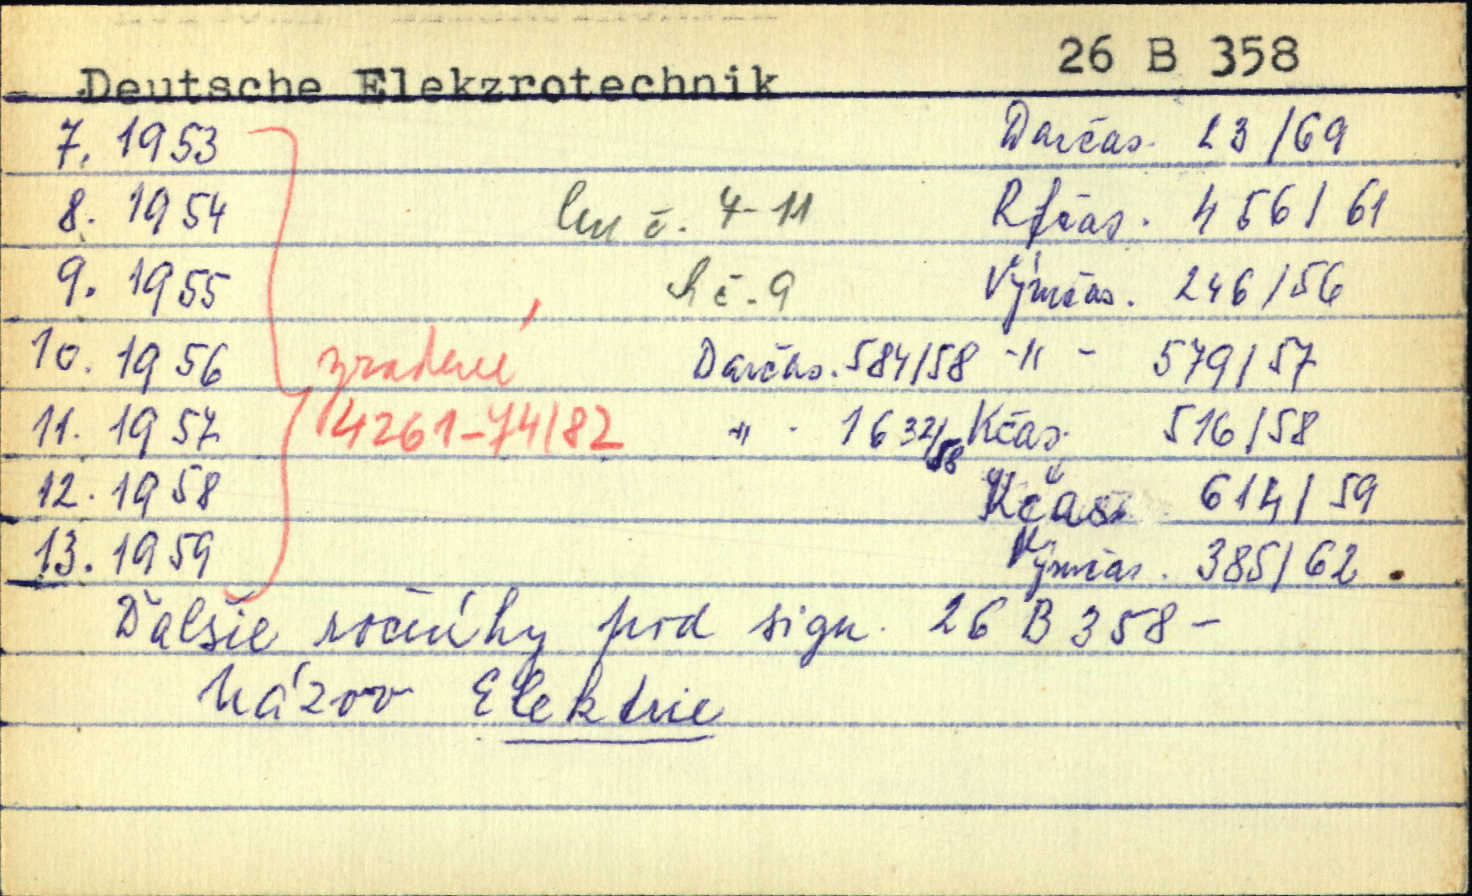 26 B 358
Deutsche Elekzrotechnik
7. 1953 Darčas. 23/69
8. 1954 len č. 7-11 Rfčas. 456/61
9. 1955 č. 9 Výmčas. 246/56
10. 1956 zradené Darčas. 584/58 -"- 579/57
11. 1957 4261-74/82 -"- 1632/58 Kčas. 516/58
12. 1958 Kčas. 614/59
13. 1959 Výmčas. 385/62
Ďalšie ročníky pod sign. 26 B 358-
názov Elektrie